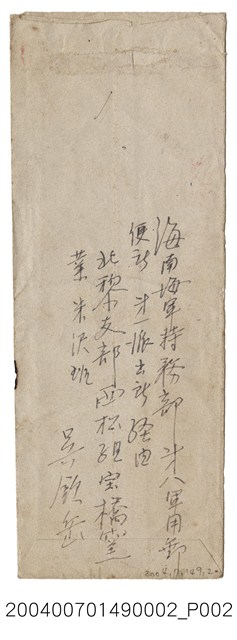 海南海軍特務部才八軍用郵
便所才一派出所経由
北黎支部西松組宝橋窯
業米沢班
吳欽岳
2004.7.149.2
200400701490002_P002